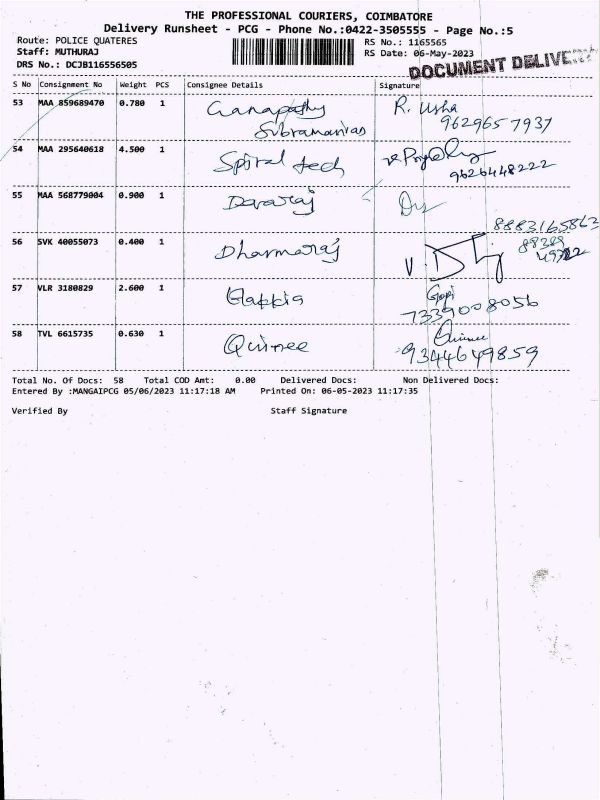 THE PROFESSIONAL COURIERS, COIMBATORE
Delivery Runsheet - PCG - Phone No.:0422-3505555 - Page No.:5
Route: POLICE QUATERES RS No.: 1165565
Staff: MUTHURAJ RS Date: 06-May-2023
DRS No.: DCJB116556505 DOCUMENT
S No Consignment No Weight PCS Consignee Details Signature
53 MAA 859689470 0.780 1 Ganapathy R. Usha
Subramanian 9629657937
54 MAA 295640618 4.500 1 Spiral tech
9626448222
55 MAA 568779004 0.900 1 Devaraj
8883165862
56 SVK 40055073 0.400 1 Dharmaraj
57 VLR 3180829 2.600 1 Gopi
7339008056
58 TVL 6615735 0.630 1 Quinee Quinee
9344649859
Total No. Of Docs: 58 Total COD Amt: 0.00 Delivered Docs: Non Delivered Docs:
Entered By :MANGAIPCG 05/06/2023 11:17:18 AM Printed On: 06-05-2023 11:17:35
Verified By Staff Signature